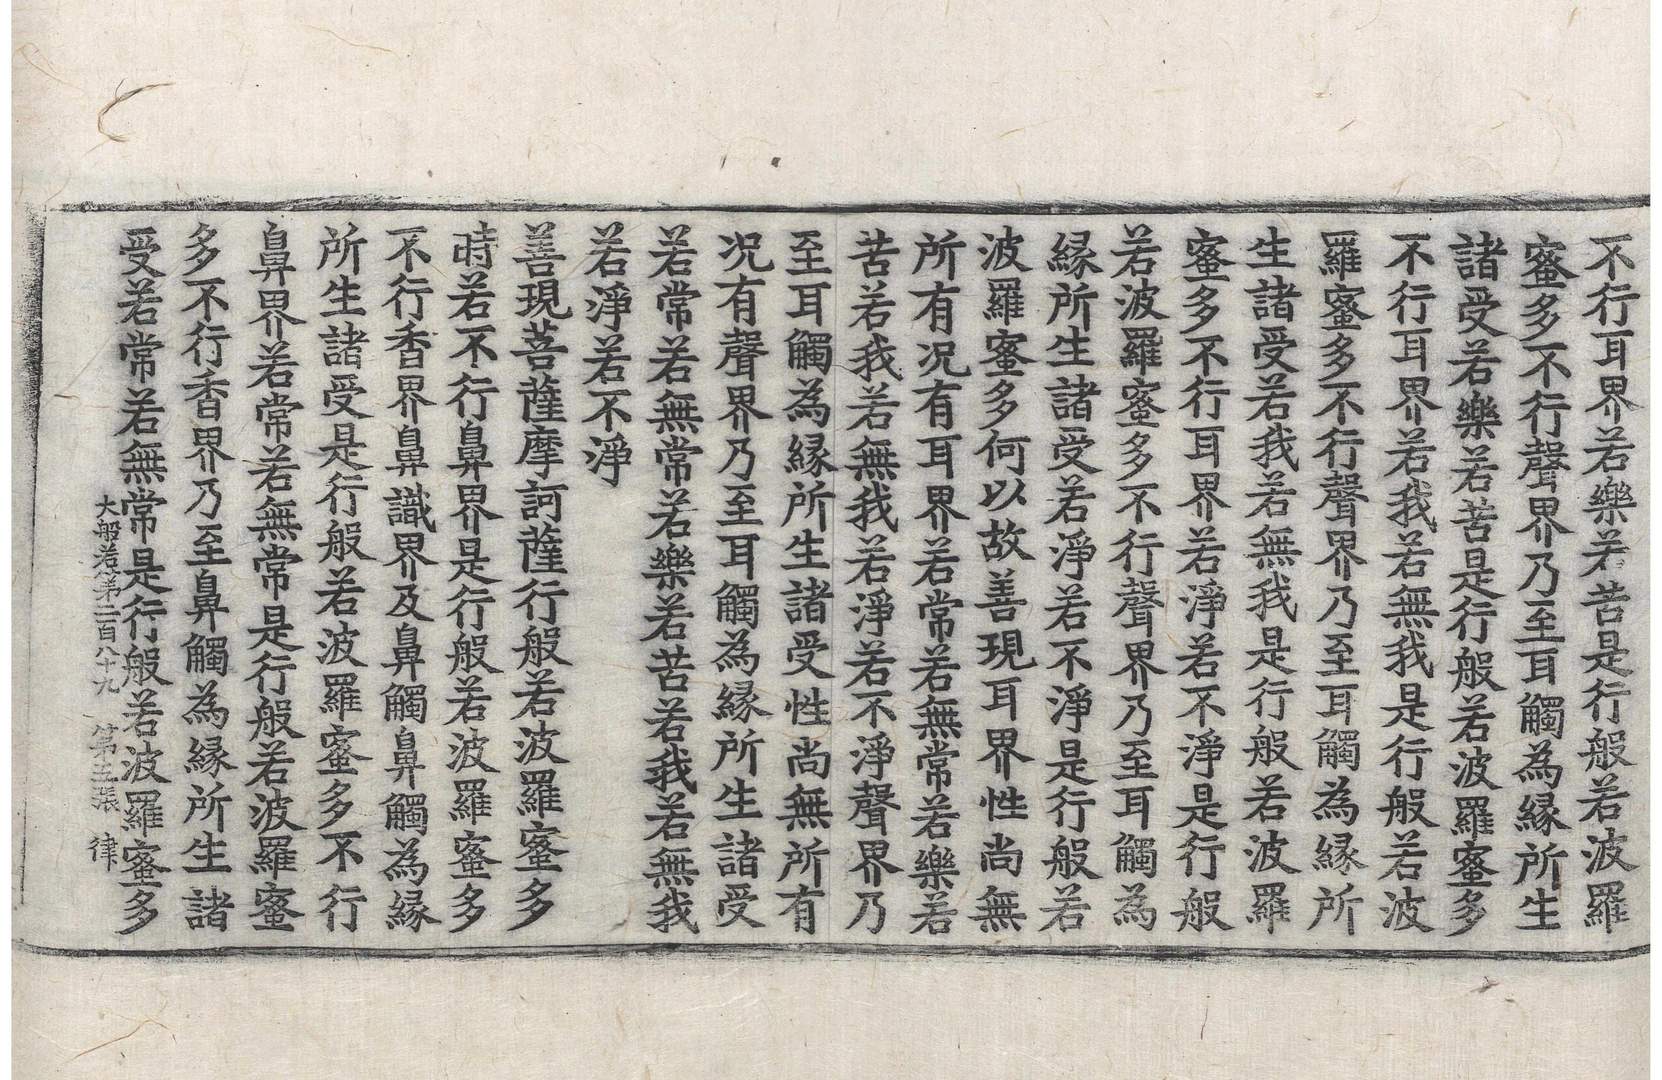 不行耳界若樂若苦是行般若波羅
蜜多不行聲界乃至耳觸為緣所生
諸受若樂若苦是行般若波羅蜜多
不行耳界若我若無我是行般若波
羅蜜多不行聲界乃至耳觸為緣所
生諸受若我若無我是行般若波羅
蜜多不行耳界若淨若不淨是行般
若波羅蜜多不行聲界乃至耳觸為
緣所生諸受若淨若不淨是行般若
波羅蜜多何以故善現耳界性尚無
所有况有耳界若常若無常若樂若
苦若我若無我若淨若不淨聲界乃
至耳觸為緣所生諸受性尚無所有
况有聲界乃至耳觸為緣所生諸受
若常若無常若樂若苦若我若無我
若淨若不淨
善現菩薩摩訶薩行般若波羅蜜多
時若不行鼻界是行般若波羅蜜多
不行香界鼻識界及鼻觸鼻觸為緣
所生諸受是行般若波羅蜜多不行
鼻界若常若無常是行般若波羅蜜
多不行香界乃至鼻觸為緣所生諸
受若常若無常是行般若波羅蜜多
大般若第二百八十九 第三張 律